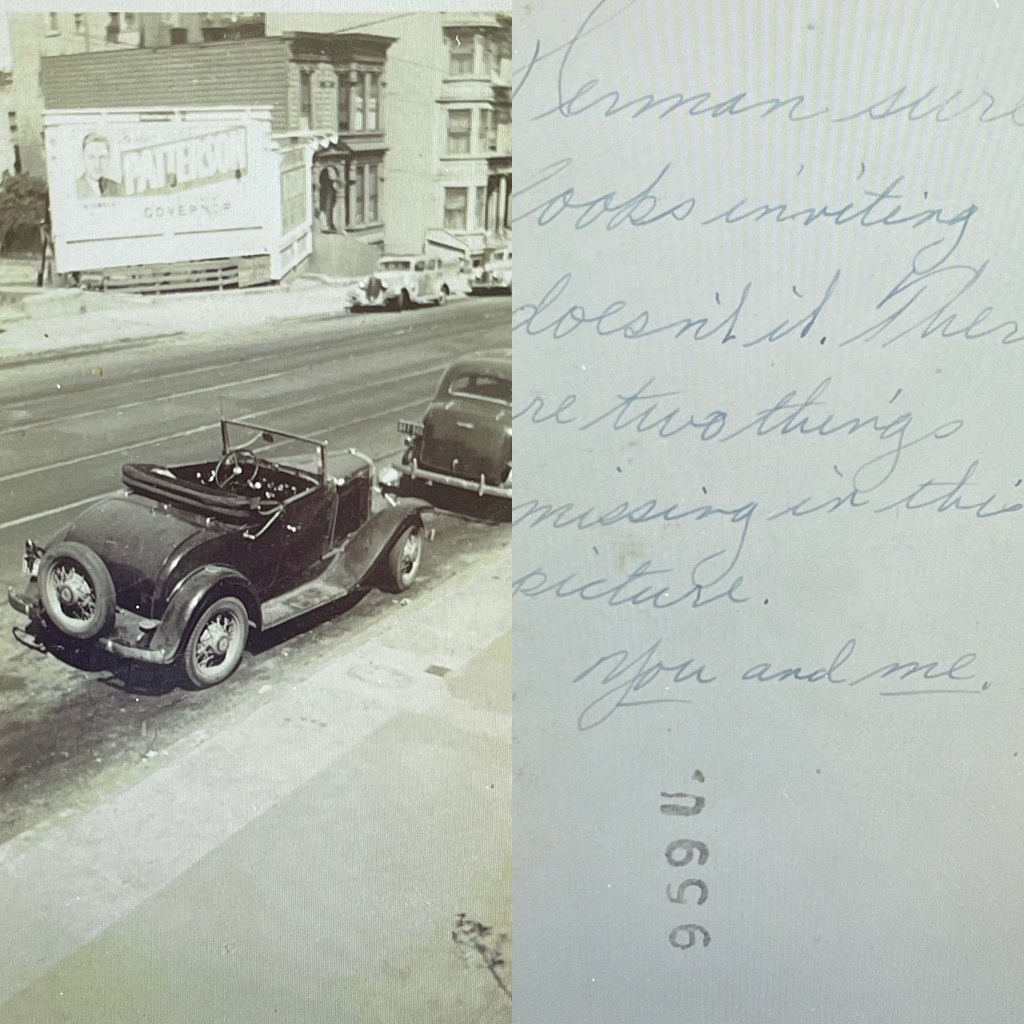 PATTERSON
GOVERNOR
Herman sure
looks inviting
doesn't it. Ther
re two things
missing in this
picture.
You and me.
959 U.